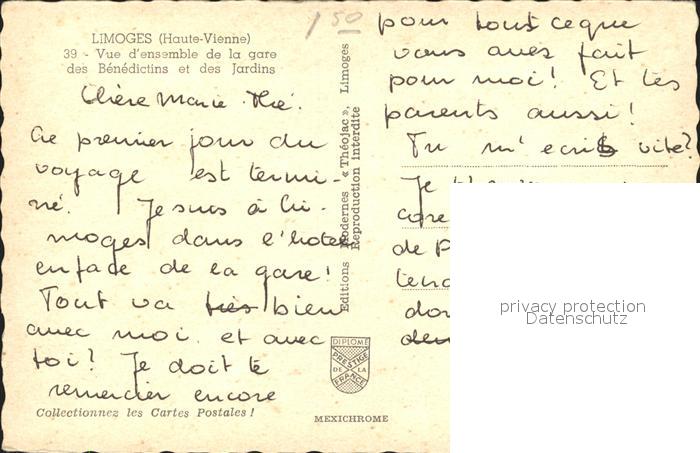 LIMOGES (Haute-Vienne)
39 - Vue d'ensemble de la gare
des Bénédictins et des Jardins
Chère Marie-Thé.
Ce premier jour du
voyage est termi-
né. Je suis à Li-
moges dans l'hotel
en face de la gare!
Tout va très bien
avec moi. et avec
toi? Je doit te
remercier encore
Collectionnez les Cartes Postales!
Editions Modernes « Théojac », Limoges
Reproduction interdite
DIPLOME
PRESTIGE
DE LA
FRANCE
MEXICHROME
1 50
pour tout ceque
vous avez fait
pour moi! Et tes
parents aussi!
Tu m'ecris vite?
Je
de
privacy protection
Datenschutz